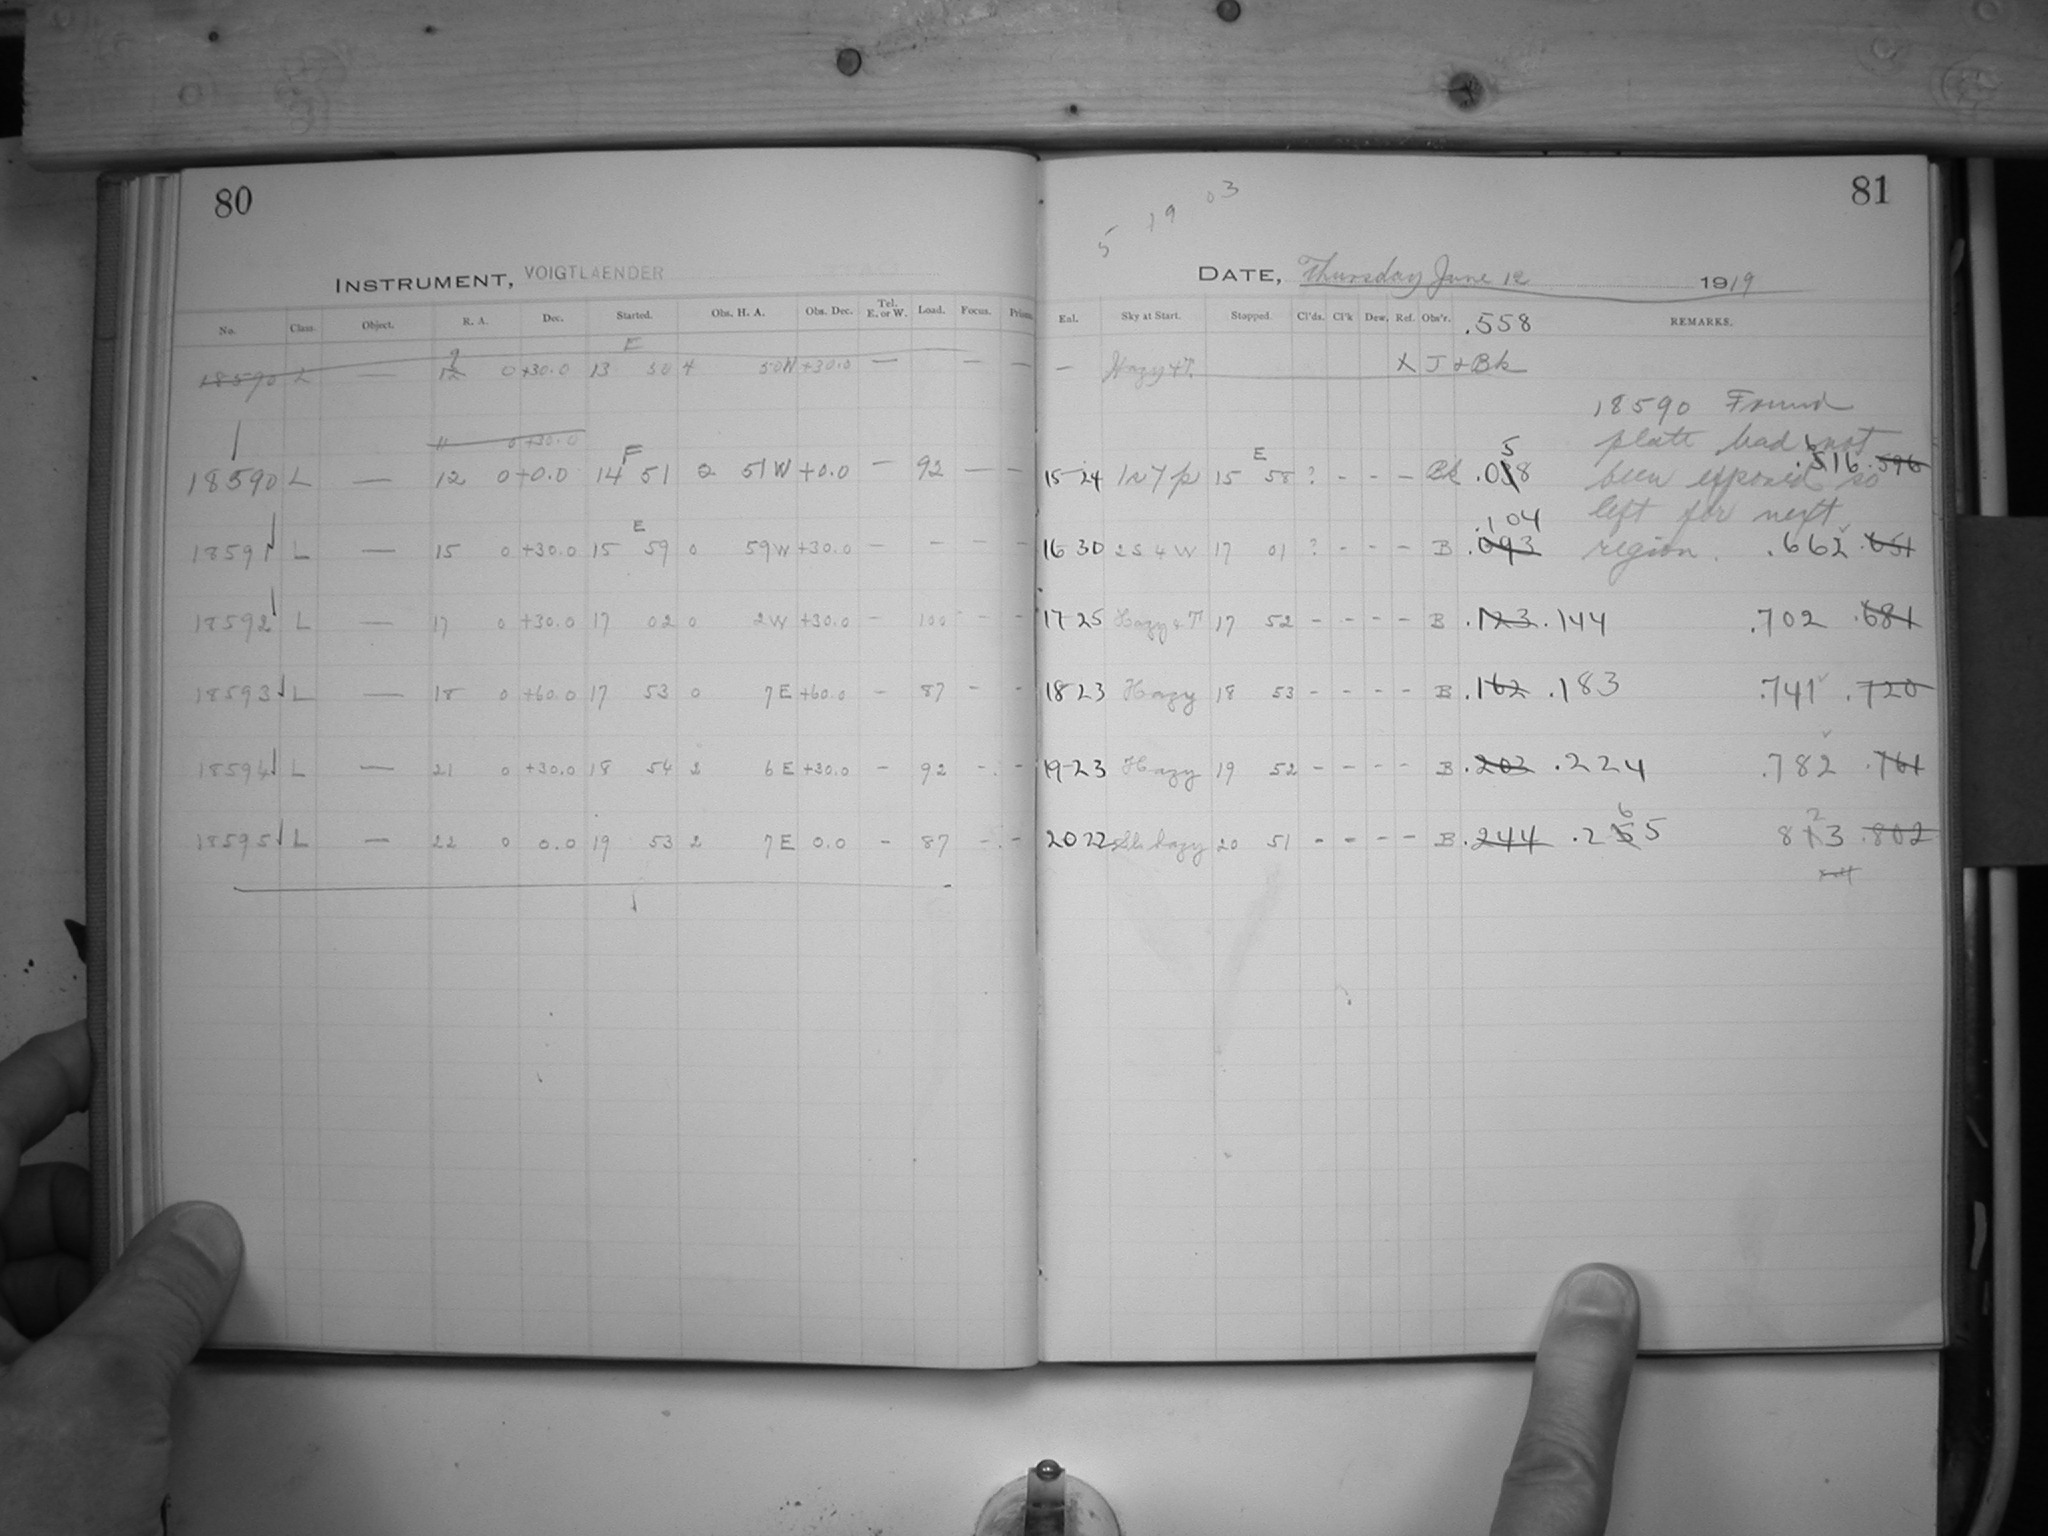 80
81
5 19 03
INSTRUMENT, VOIGTLAENDER
DATE, Thursday June 12 1919
No. Class. Object. R. A. Dec. Started. Obs. H. A. Obs. Dec. Tel. E. or W. Load. Focus. Prism. Eal. Sky at Start. Stopped. Cl'ds. Cl'k Dew. Ref. Obs'r. .558 REMARKS.
18590 L — 9 12 0 +30.0 13 50 4 50W +30.0 — — — — Hazy 4T. X J + Bk
18590 Found
plate had not
been exposed so
left for next
region.
11 0 +30.0
18590 L — 12 0 +0.0 14 51 2 51W +0.0 — 92 — — 15 24 15 58 ? - - - Bk .038 5 .516 .596
18591 L — 15 0 +30.0 15 59 0 59W +30.0 — - - - 16 30 2S 4 W 17 01 ? - - - B .093 .104 .662 .651
18592 L — 17 0 +30.0 17 02 0 2W +30.0 - 100 - - 17 25 Hazy + T 17 52 - - - - B .123 .144 .702 .681
18593 L — 18 0 +60.0 17 53 0 7E +60.0 - 87 - - 18 23 Hazy 18 53 - - - - B .162 .183 .741 .720
18594 L — 21 0 +30.0 18 54 2 6E +30.0 - 92 - - 19 23 Hazy 19 52 - - - - B .203 .224 .782 .761
18595 L — 22 0 0.0 19 53 2 7E 0.0 - 87 - - 20 22 Sl. hazy 20 51 - - - - B .244 .255 6 813 2 .802